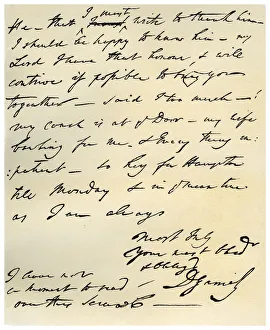 He - that I must write to thank him
I should be happy to know him - my
Lord I have that honour, & will
contrive if possible to bring you
together - said I too much - !
my coach is at ye Door - my wife
bawling for me, & Every thing im:
:patient - to key for Hampton
till Monday & in ye mean time
as I am always
most truly
your most Obdt
& oblig'd
D Garrick
I have not
a moment to read
over this Scrawl -